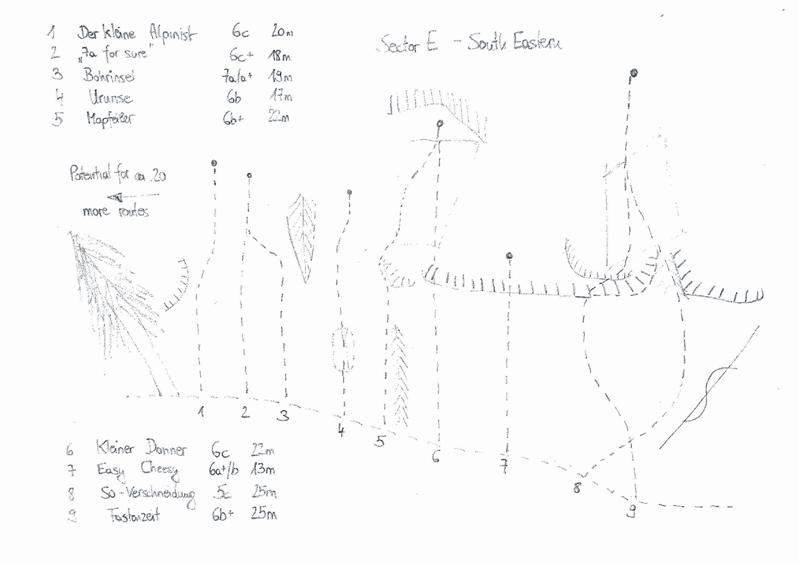 1 Der kläne Alpinist 6c 20m
2 „7a for sure" 6c+ 18m
3 Bohrinsel 7a/a+ 19m
4 Urunse 6b 17m
5 Mapfeifer 6b+ 22m
Sector E - South Eastern
Potential for ca. 20
more routes
1
2
3
4
5
6
7
8
9
6 Kleiner Donner 6c 22m
7 Easy Cheesy 6a+/b 13m
8 SO-Verschneidung 5c 25m
9 Fastenzeit 6b+ 25m